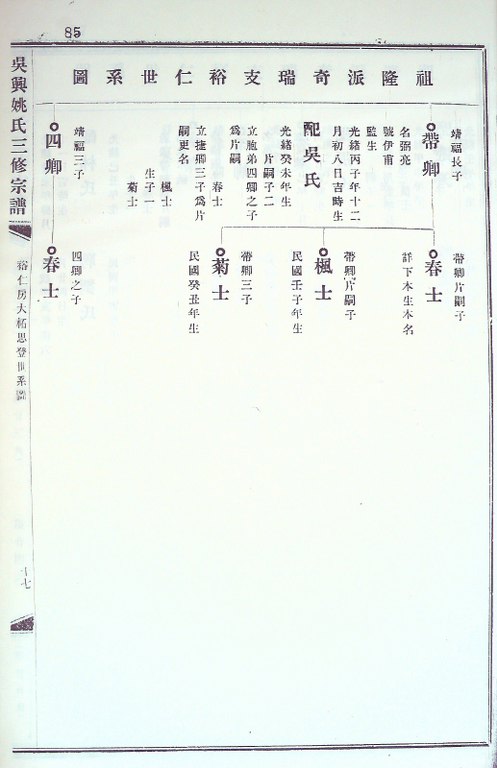 85
祖隆派奇瑞支裕仁世系圖
靖福長子
帶卿
名弼亮
號伊甫
監生
光緒丙子年十二
月初八日吉時生
配吳氏
光緒癸未年生
片嗣子二
立胞弟四卿之子
為片嗣
春士
立捷卿三子為片
嗣更名
楓士
生子一
菊士
靖福三子
四卿
帶卿片嗣子
春士
詳下本生本名
帶卿片嗣子
楓士
民國壬子年生
帶卿三子
菊士
民國癸丑年生
四卿之子
春士
吳興姚氏三修宗譜
裕仁房大柘思登世系圖
十七